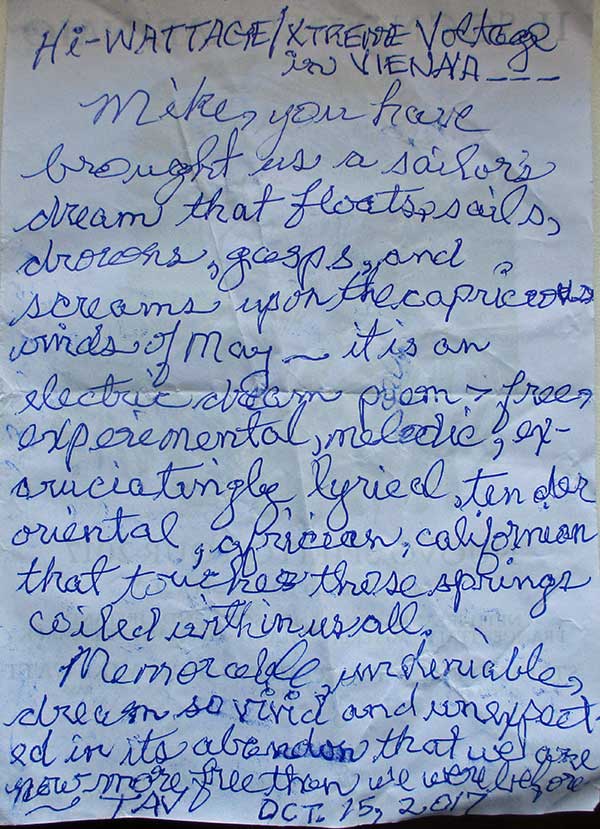 Hi-WATTAGE/XTREME Voltage
in VIENNA ___
Mike, you have
brought us a sailor's
dream that floats, sails,
drowns, gasps, and
screams upon the capricious
winds of May ~ it is an
electric dream poem - free,
experemental, melodic, ex-
cruciatingly lyrical, tender
oriental, african, californian
that touches those springs
coiled within us all.
Memorable, undeniable,
dream so vivid and unexpect-
ed in its abandon that we are
now more free than we were before
~ TAV OCT. 15, 2017